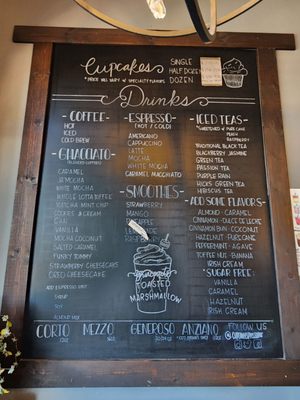 Cupcakes
* PRICE WILL VARY W/ SPECIALTY FLAVORS
SINGLE
HALF DOZEN
DOZEN
Drinks
- COFFEE -
HOT
ICED
COLD BREW
- GHIACCIATO -
CARAMEL
JAMOCHA
WHITE MOCHA
WHOLE LOTTA TOFFEE
MATCHA MINT CHIP
COOKIES & CREAM
OREO
VANILLA
MOCHA COCONUT
SALTED CARAMEL
FUNKY TOMMY
STRAWBERRY CHEESECAKE
OREO CHEESECAKE
ADD ESPRESSO SHOT
SYRUP
SOY
ALMOND MILK
- ESPRESSO -
(HOT / COLD)
AMERICANO
CAPPUCCINO
LATTE
MOCHA
WHITE MOCHA
CARAMEL MACCHIATO
- SMOOTHIES -
STRAWBERRY
MANGO
TOASTED
MARSHMALLOW
- ICED TEAS -
*SWEETENED W/ PURE CANE
PEACH
RASPBERRY
TRADITIONAL BLACK TEA
BLACKBERRY JASMINE
GREEN TEA
PASSION TEA
PURPLE RAIN
HICKS GREEN TEA
HIBISCUS TEA
- ADD SOME FLAVORS -
ALMOND - CARAMEL
CINNAMON - DULCE DE LECHE
CINNAMON BUN - COCONUT
HAZELNUT - PURE CANE
PEPPERMINT - AGAVE
TOFFEE NUT - BANANA
IRISH CREAM
*SUGAR FREE:
VANILLA
CARAMEL
HAZELNUT
IRISH CREAM
CORTO MEZZO GENEROSO ANZIANO
FOLLOW US